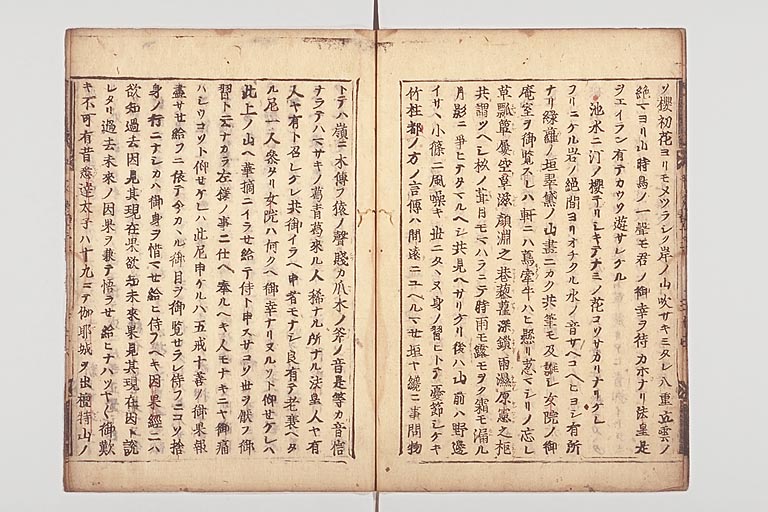 ソ櫻初花ヨリモメツラシク岸ノ山吹サキミタレ八重立雲ノ
絶マヨリ山時鳥ノ一聲モ君ノ御幸ヲ待カホナリ法皇是
ヲエイラン有テカウソ遊サレケル
池水ニ汀ノ櫻チリシキテナミノ花コソサカリナリケレ
フリニケル岩ノ絶間ヨリオチクル水ノ音サヘコヘヒヨシ有所
ナリ緑蘿ノ垣翠黛ノ山畫ニカク共筆モ及難シ女院ノ御
庵室ヲ御覧スレハ軒ニハ蔦牽牛ハヒ懸リ忍マシリノ忘レ
草瓢箪屡空草滋顔淵之巷藜藋深鎖雨濕原憲之枢
共謂ツヘシ杦ノ葺目モマハラニテ時雨モ露モヲク霜モ漏ル
月影ニ爭ヒテタマルヘシ共見ヘサリケリ後ハ山前ハ野邊
イサヽ小篠ニ風噪キ世ニタヽヌ身ノ習ヒトテ憂節シケキ
竹柱都ノ方ノ言傳ハ間遠ニユヘルマセ垣ヤ纔ニ事問物
トテハ嶺ニ木傳フ猿ノ聲賤カ爪木ノ斧ノ音是等カ音信
ナラテハマサキノ葛青葛來ル人稀ナル所ナル法皇人ヤ有
人ヤ有ト召レケレ共御イラヘ申者モナシ良有テ老衰ヘタ
ル尼一人參タリ女院ハ何クヘ御幸ナリヌルソト仰セケレハ
此上ノ山ヘ華摘ニイラせ給テ侍ト申スサコソ世ヲ厭フ御
習ト云ナカラ左様ノ事ニ仕ヘ奉ルヘキ人モナキニヤ御痛
ハシウコソト仰せケレハ此尼申ケルハ五戒十善ノ御果報
盡サセ給フニ依テ今カヽル御目ヲ御覧せラレ侍フニコソ捨
身ノ行ニナシカハ御身ヲ惜マせ給ヒ侍フヘキ因果經ニハ
欲知過去因見其現在果欲知未來果見其現在因ト説
レタリ過去未來ノ因果ヲ兼テ悟ラせ給ヒナハツヤ〱御歎
キ不可有昔悉達太子ハ十九ニテ伽耶城ヲ出檀特山ノ